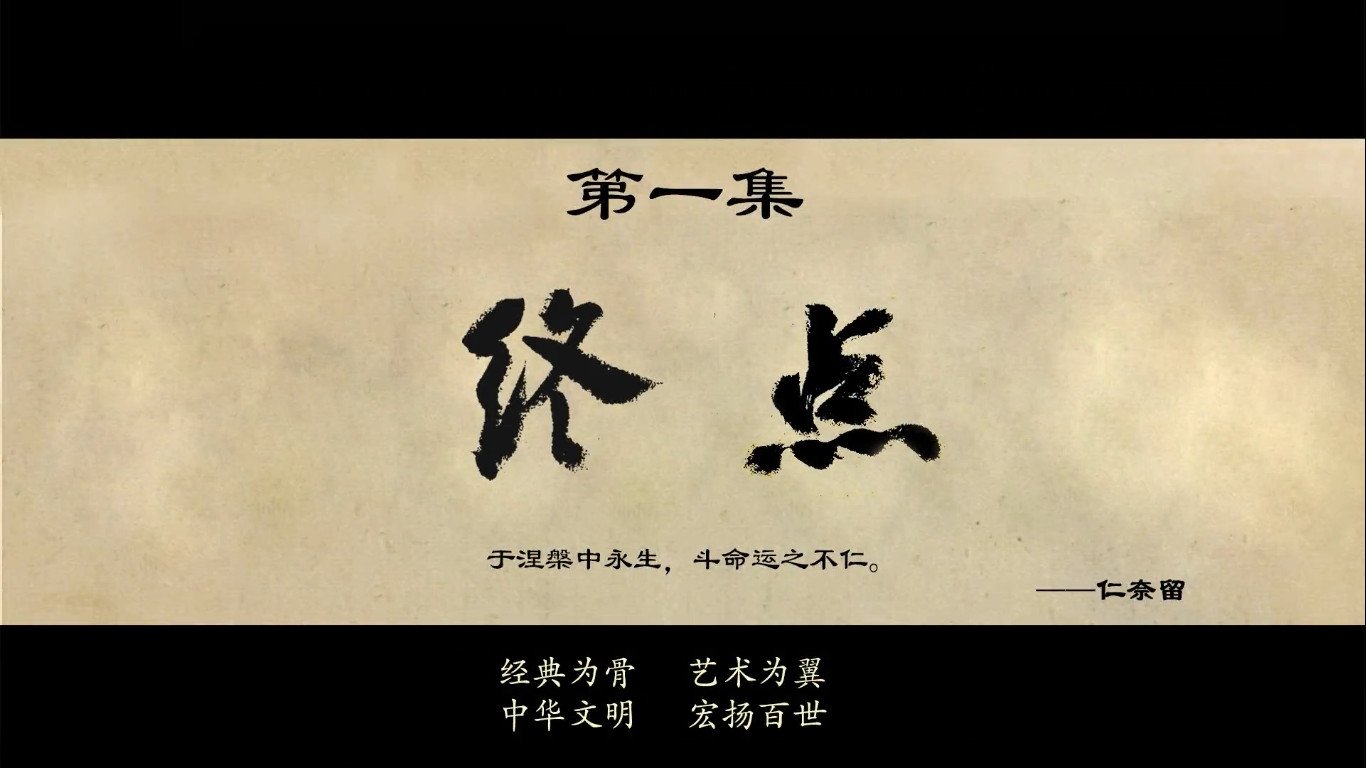 第一集
终点
于涅槃中永生，斗命运之不仁。
——仁奈留
经典为骨 艺术为翼
中华文明 宏扬百世